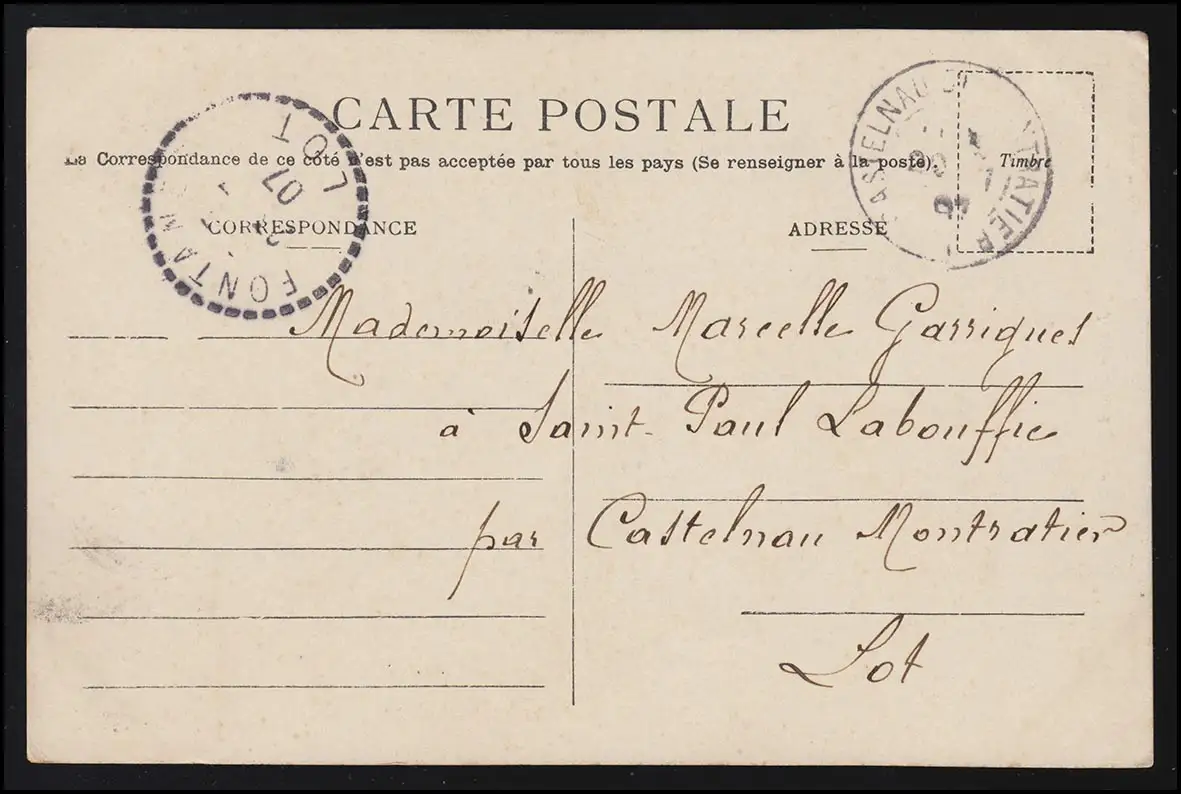 CARTE POSTALE
La Correspondance de ce côté n'est pas acceptée par tous les pays (Se renseigner à la poste).
Timbre
CORRESPONDANCE
ADRESSE
LOT
07
FONTAN
20
07
Mademoiselle Marcelle Garrigues
à Saint-Paul Labouffie
par Castelnau Montratier
Lot